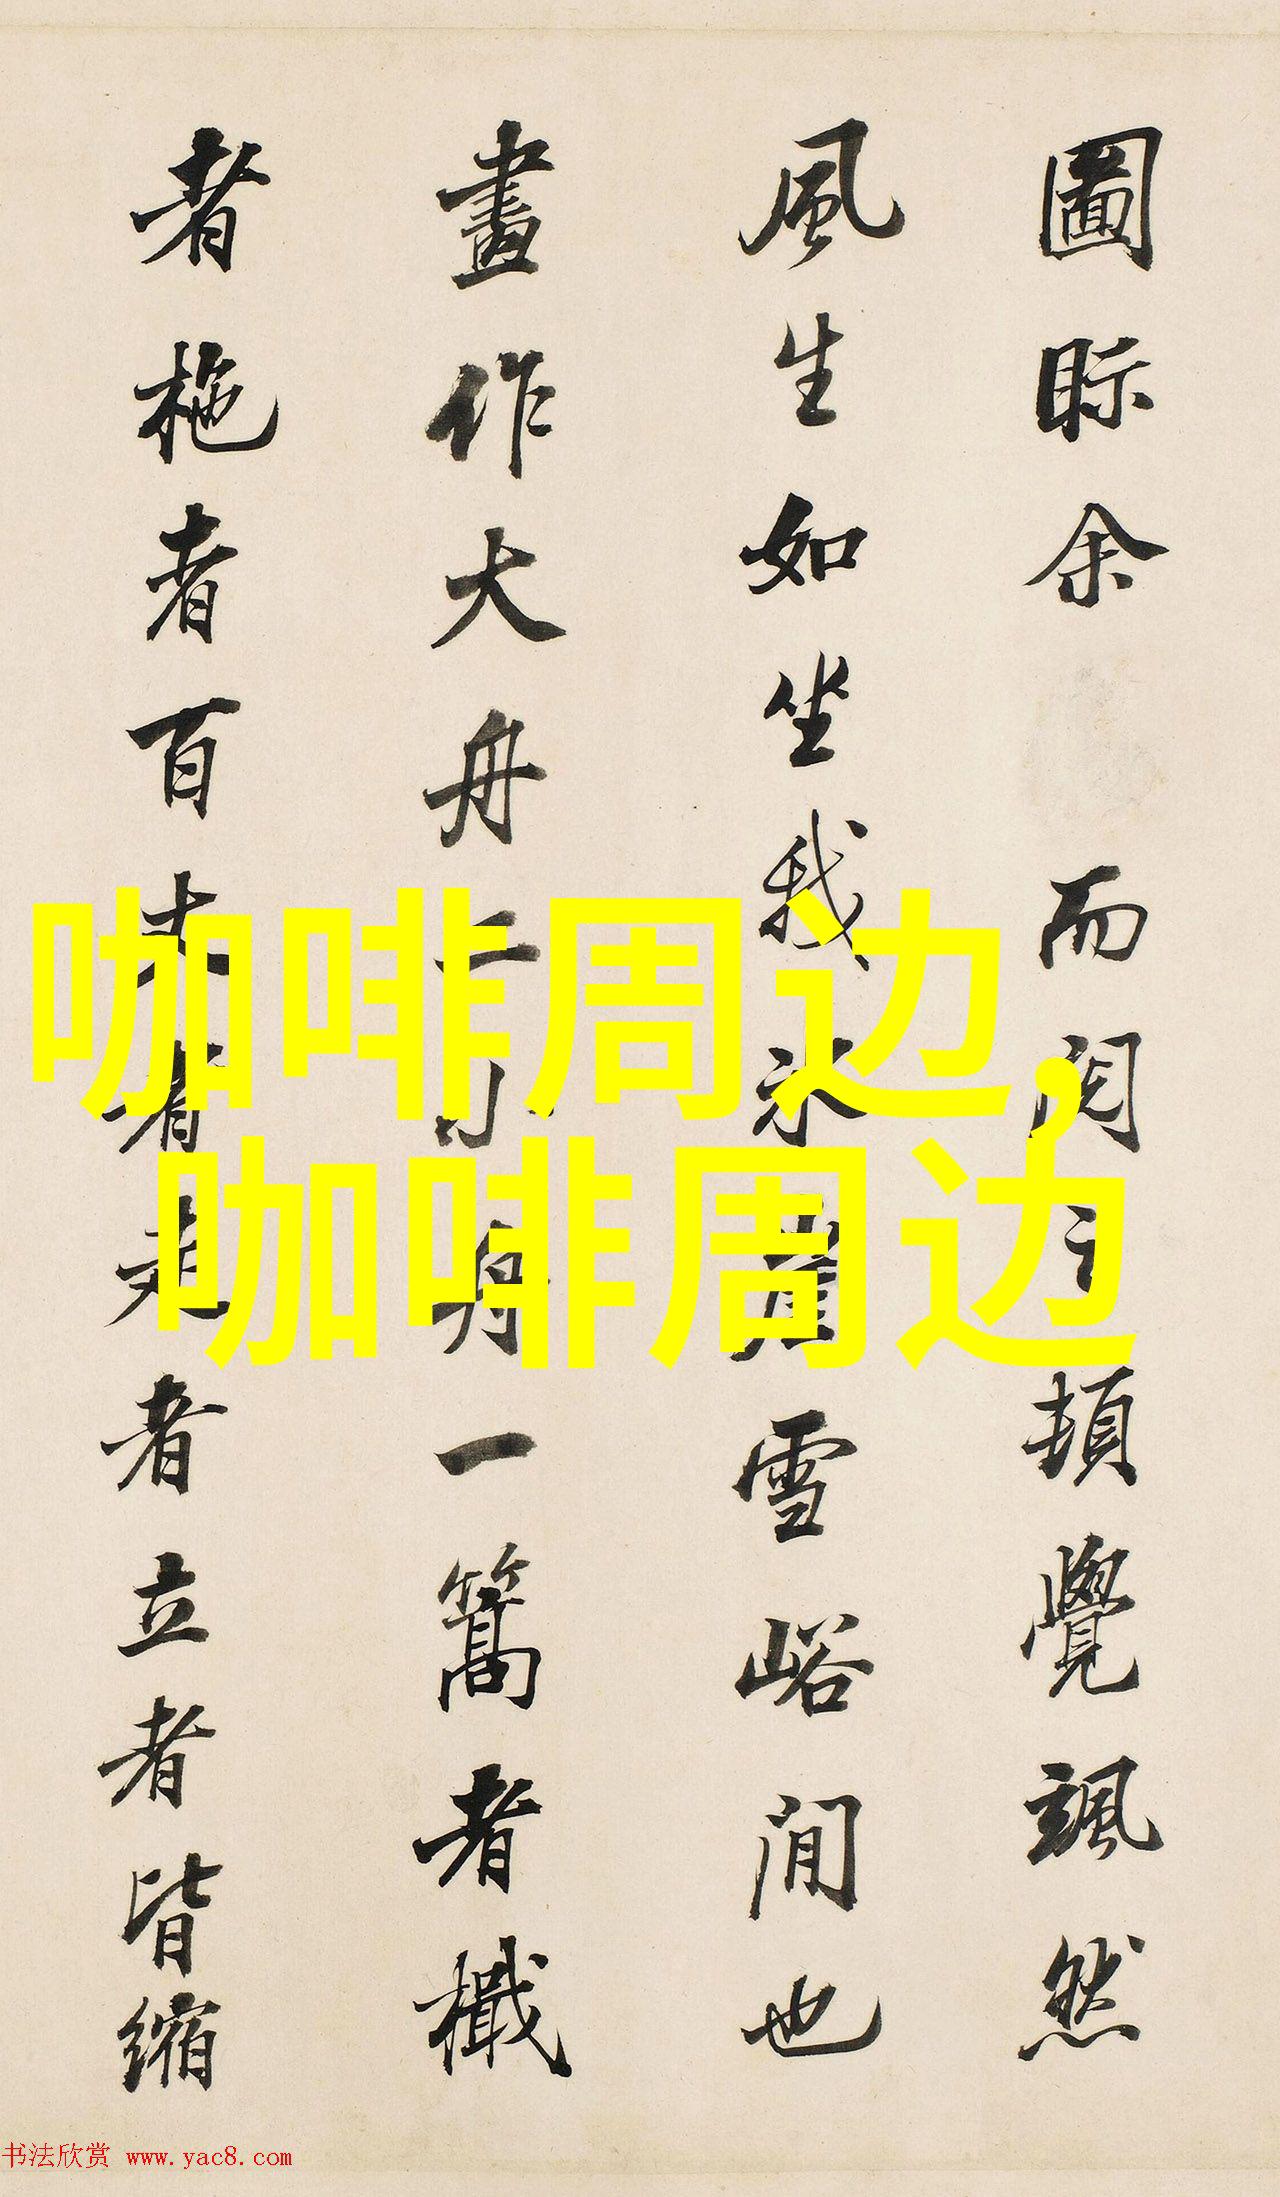 圖眎余而閱之頓覺颯然
風生如坐我冰崖雪峪間也
畫作大舟二小舟一篙者檝
者柂者百丈者走者立者皆縮
咖啡周边,
咖啡周边
书法欣赏 www.yac8.com